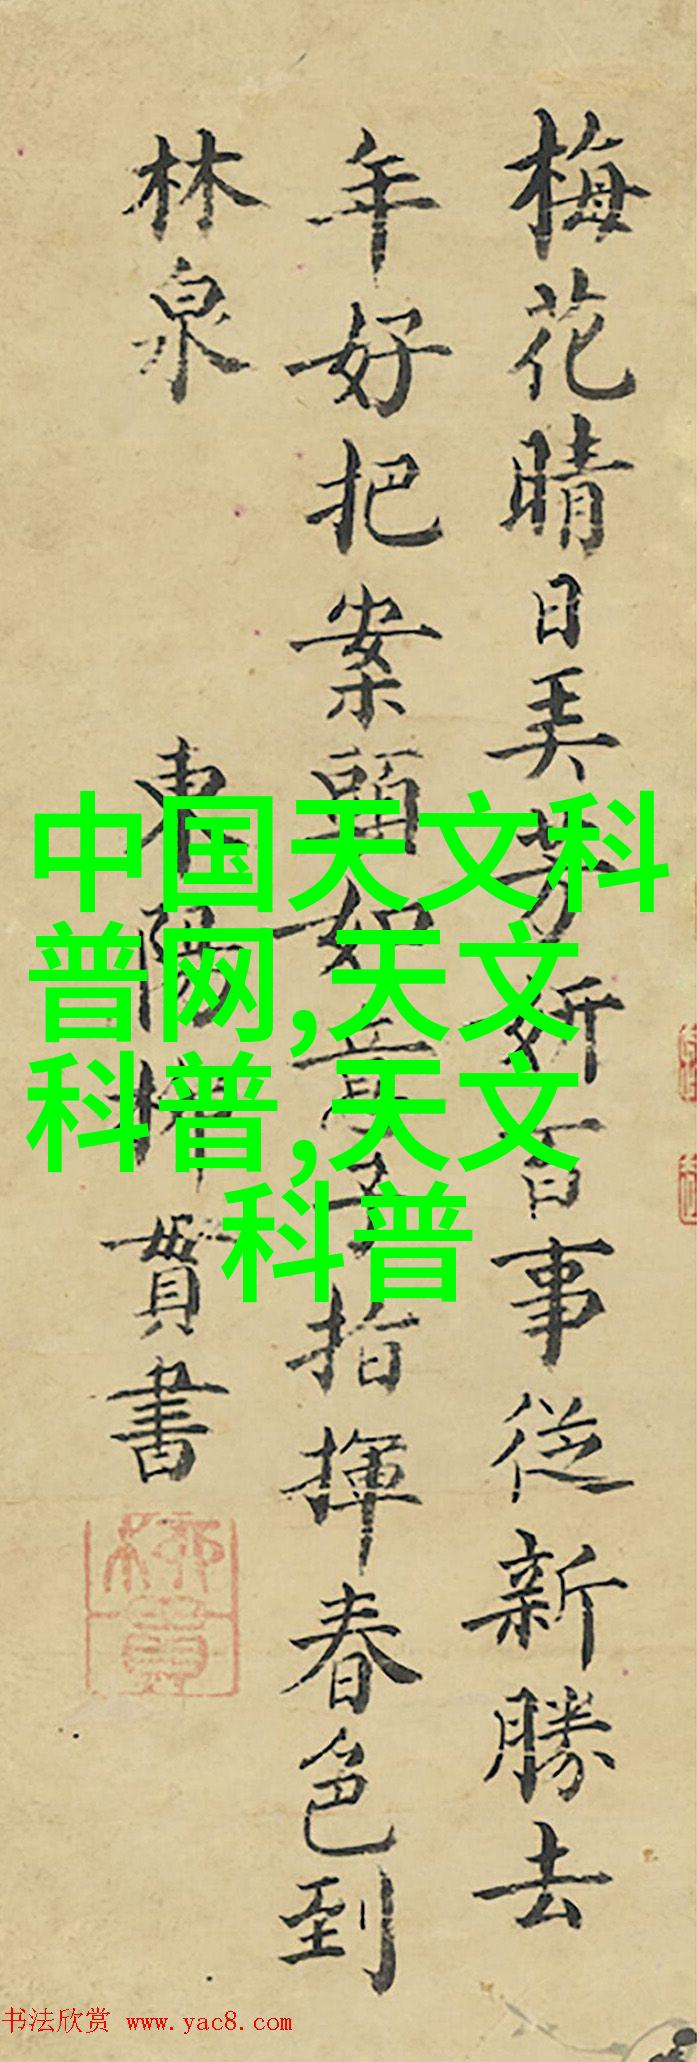 梅花晴日美芳妍百事從新勝去
年好把案頭如意子指揮春色到
林泉
東陽柳貫書
柳貫
中国天文科
普网,天文
科普,天文
科普
书法欣赏 www.yac8.com